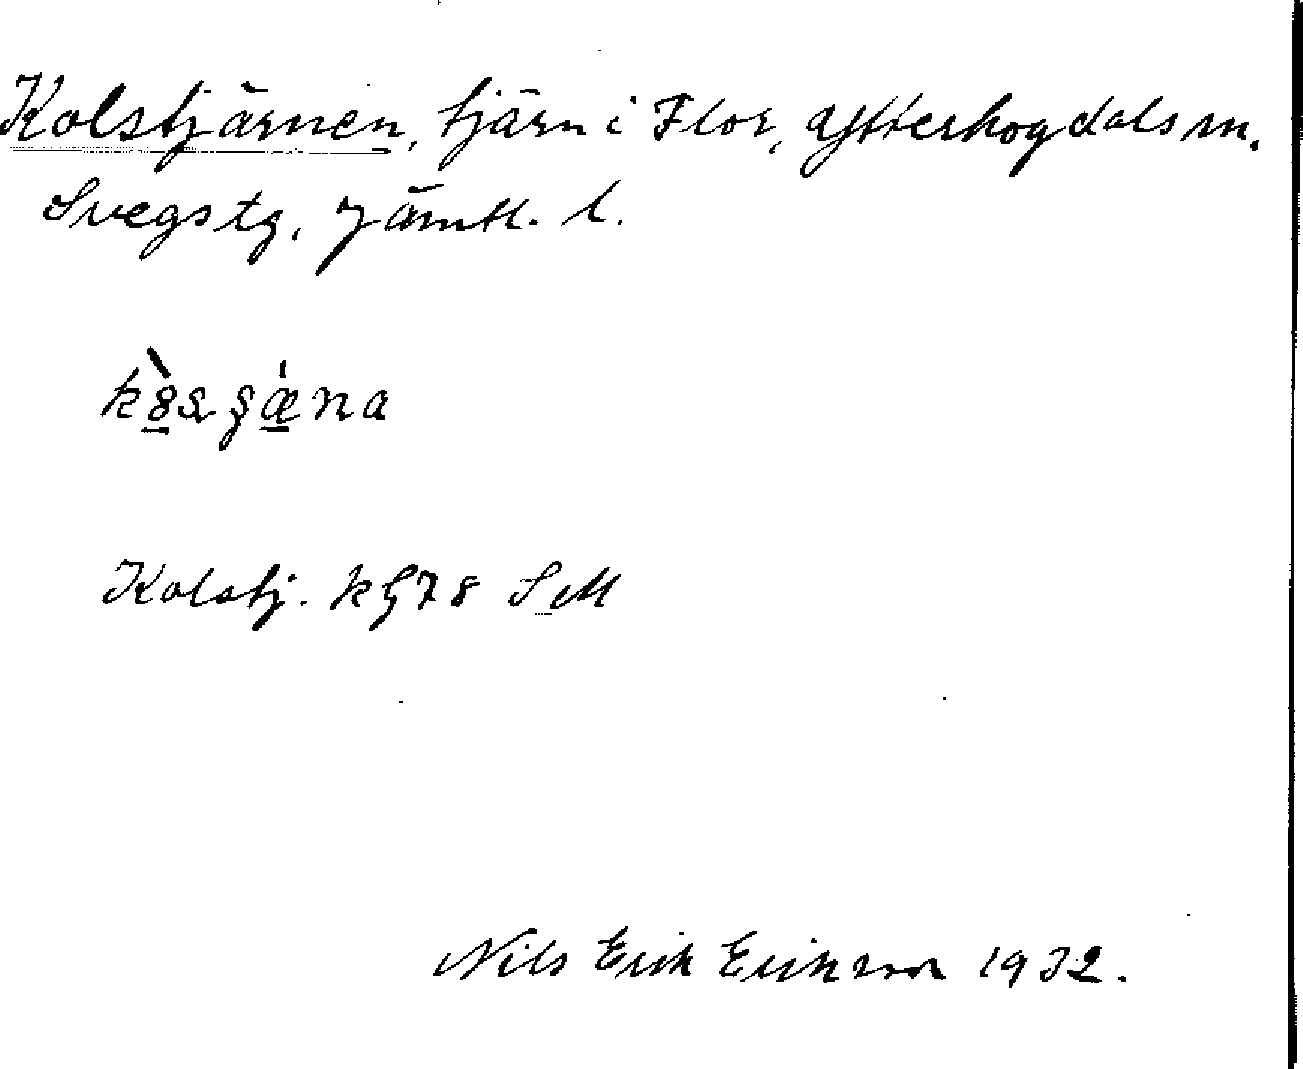 Kolstjärnen, tjärn i Flor, Ytterhogdals sn.
Svegs tg, Jämtl. l.
Kolstj. kG78 SM
Nils Erik Eriksson 1932.